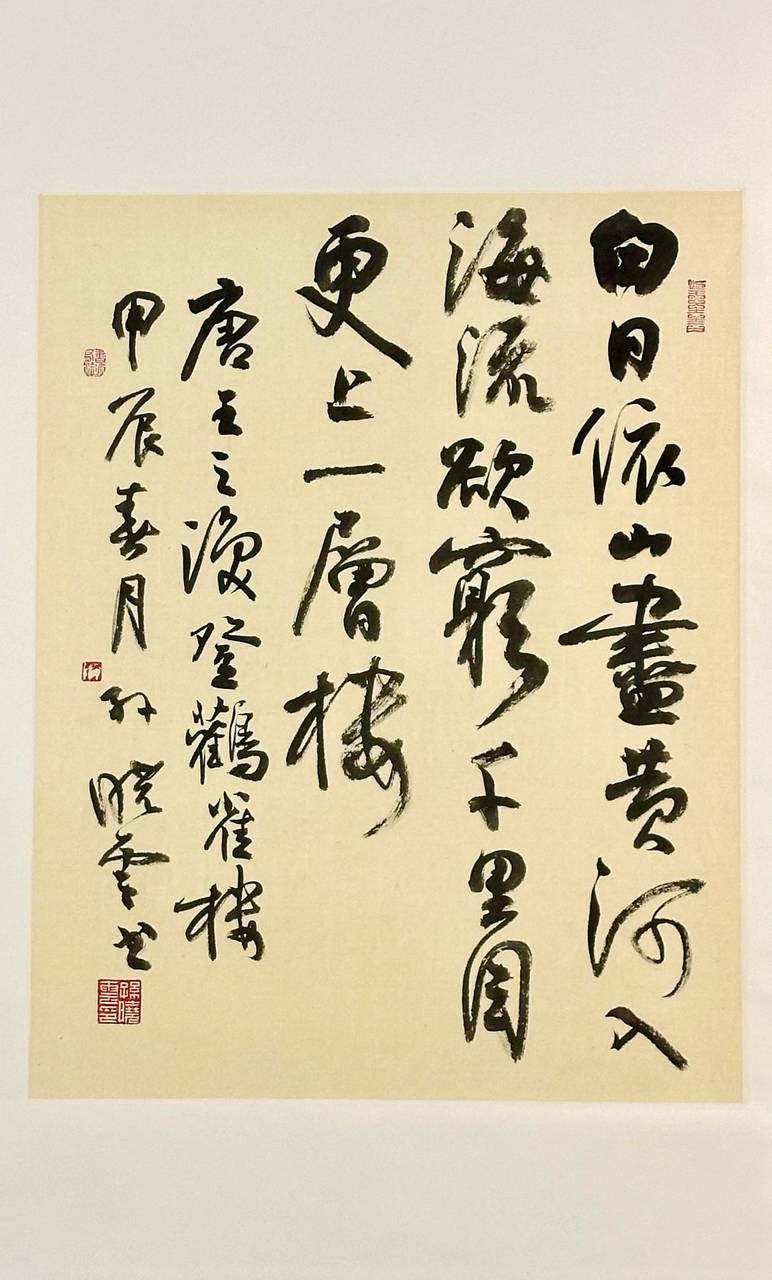 白日依山盡黄河入
海流欲窮千里目
更上一層樓
唐王之渙登鸛雀樓
甲辰春月孙曉雲书